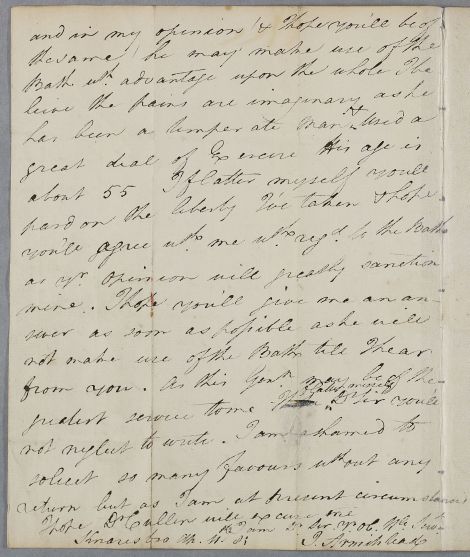 and in my opinion (& I hope you'll be of
the same) he may make use of the
Bath wth advantage upon the whole I be
leive the pains are imaginary as he
has been a temperate man, & Used a
great deal of Exercise His age is
about 55 I flatter myself you'll
pardon the liberty I've taken & hope
you'll agree wth me wth regd to the Bath
as yr opinion will greatly sanction
mine. I hope you'll give me an an-
swer as soon as possible as he will
not make use of the Bath till I hear
from you. As this Gentn may be of the
greatest service to me I flatter myself
Dr Sir you'll
not neglect to write. I am ashamed to
solicit so many favours wthout any
return but as I am at present circumstanced
I hope Dr Cullen will excuse me
I am Dr Sir yr Ob. Hle Servt